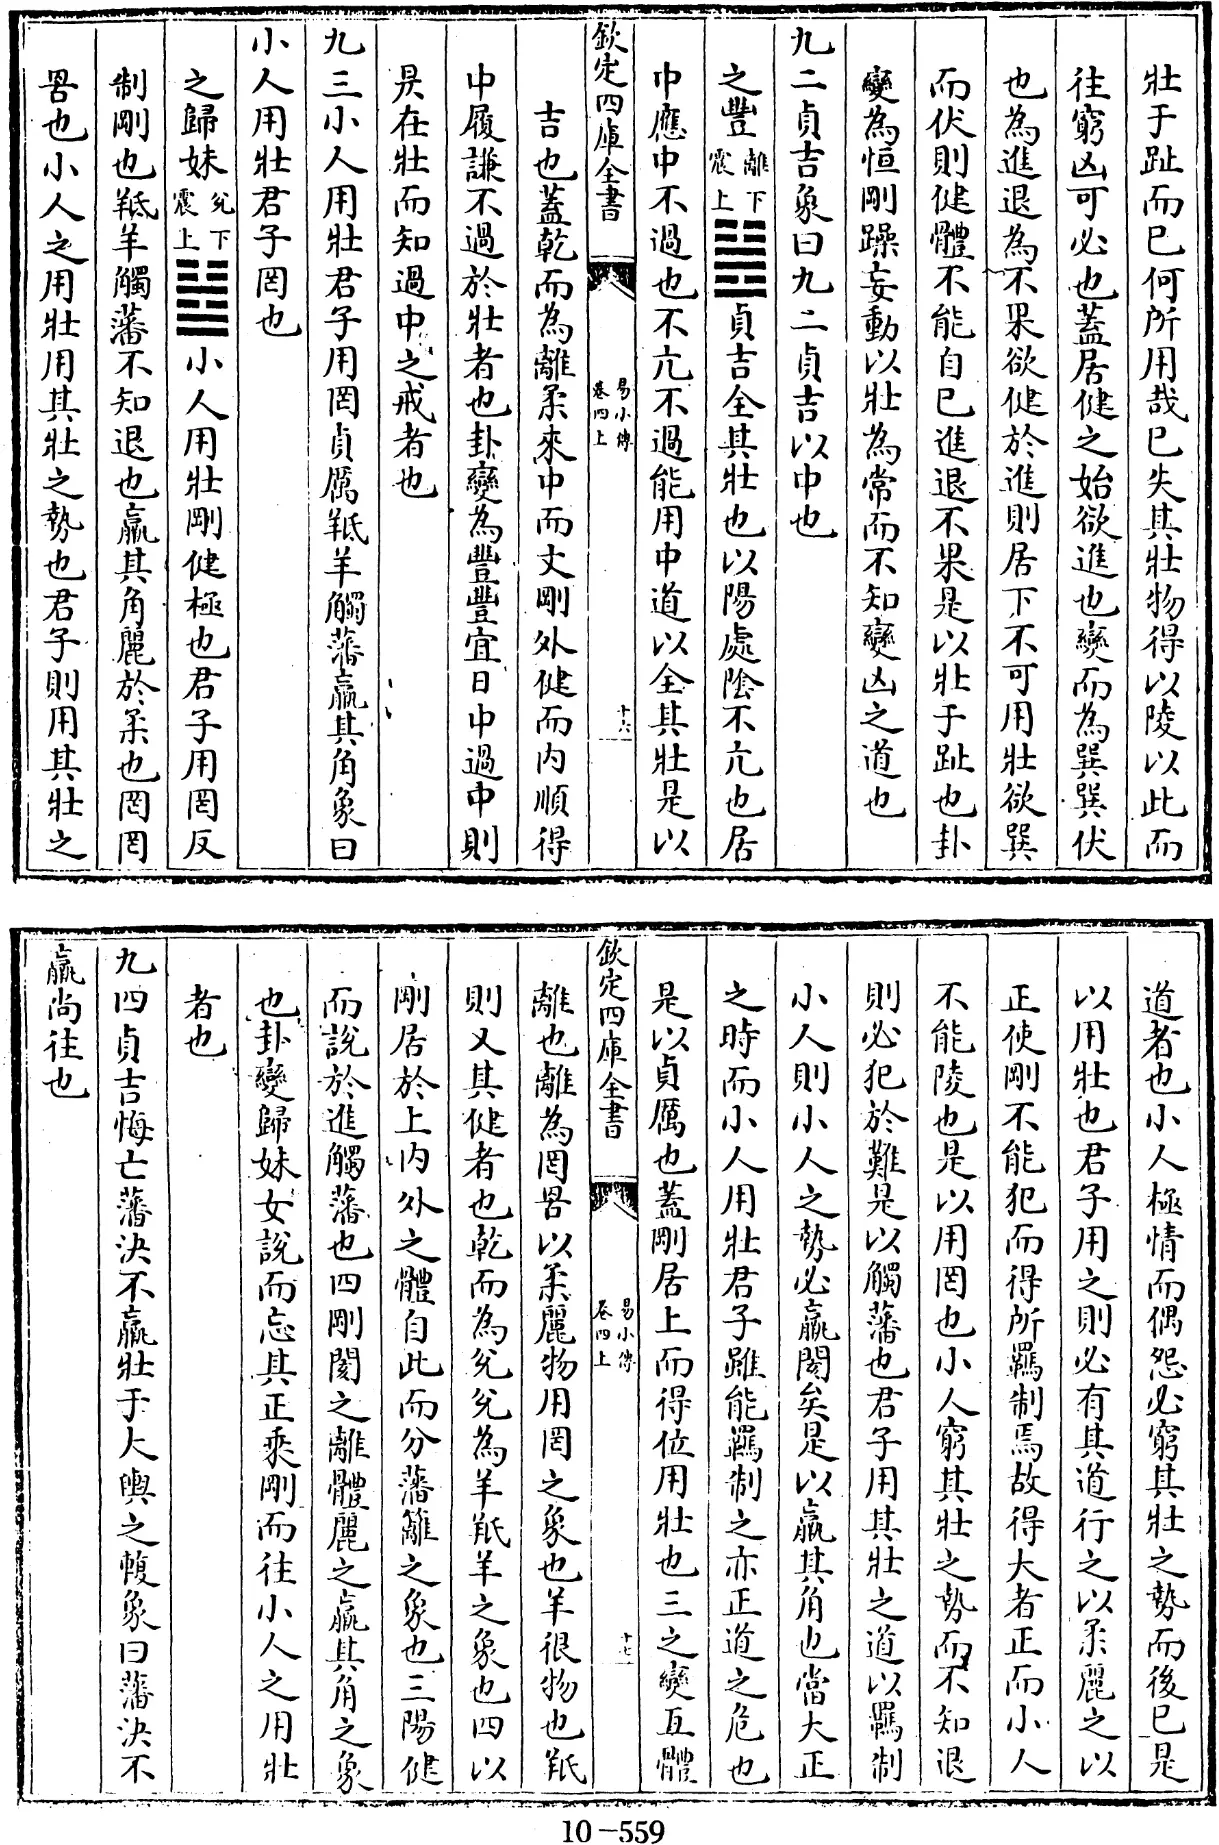 壯于趾而已何所用哉已失其壯物得以陵以此而
往窮凶可必也蓋居健之始欲進也變而為巽巽伏
也為進退為不果欲健於進則居下不可用壯欲巽
而伏則健體不能自已進退不果是以壯于趾也卦
變為恒剛躁妄動以壯為常而不知變凶之道也
九二貞吉象曰九二貞吉以中也
之豐離下震上䷶貞吉全其壯也以陽處陰不亢也居
中應中不過也不亢不過能用中道以全其壯是以
欽定四庫全書 易小傳卷四上 十六
吉也蓋乾而為離柔來中而文剛外健而内順得
中履謙不過於壯者也卦變為豐豐宜日中過中則
昃在壯而知過中之戒者也
九三小人用壯君子用罔貞厲羝羊觸藩羸其角象曰
小人用壯君子罔也
之歸妹兌下震上䷵小人用壯剛健極也君子用罔反
制剛也羝羊觸藩不知退也羸其角麗於柔也罔罔
罟也小人之用壯用其壯之勢也君子則用其壯之
道者也小人極情而偶怨必窮其壯之勢而後已是
以用壯也君子用之則必有其道行之以柔麗之以
正使剛不能犯而得所羈制焉故得大者正而小人
不能陵也是以用罔也小人窮其壯之勢而不知退
則必犯於難是以觸藩也君子用其壯之道以羈制
小人則小人之勢必羸閡矣是以羸其角也當大正
之時而小人用壯君子雖能羈制之亦正道之危也
是以貞厲也蓋剛居上而得位用壯也三之變互體
欽定四庫全書 易小傳卷四上 十七
離也離為罔罟以柔麗物用罔之象也羊很物也羝
則又其健者也乾而為兌兌為羊羝羊之象也四以
剛居於上内外之體自此而分藩籬之象也三陽健
而說於進觸藩也四剛閡之離體麗之羸其角之象
也卦變歸妹女說而忘其正乘剛而往小人之用壯
者也
九四貞吉悔亡藩決不羸壯于大輿之輹象曰藩決不
羸尚往也
10-559